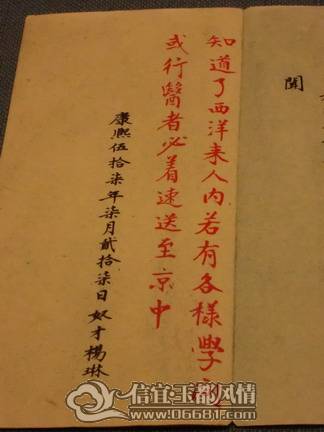 聞
知道了西洋来人内若有各樣學問
或行醫者必着速送至京中
康熙伍拾柒年柒月貳拾柒日奴才楊琳
信宜玉都风情
www.06681.com